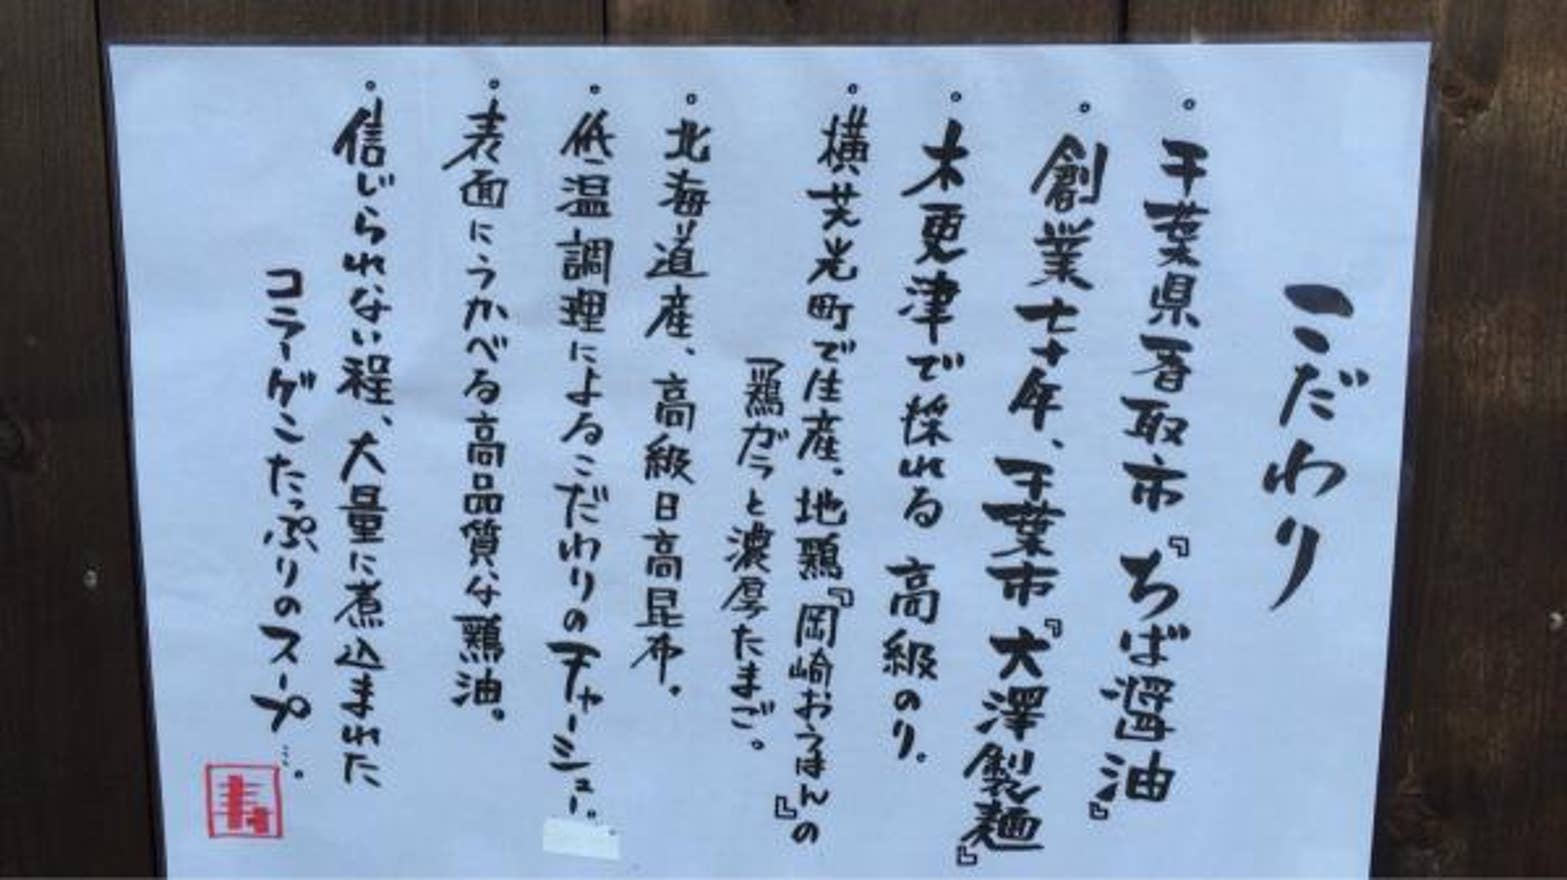 こだわり
・千葉県香取市『ちば醤油』
・創業七十年、千葉市『大澤製麺』
・木更津で採れる高級のり。
・横芝光町で生産、地鶏『岡崎おうはん』の
『鶏ガラと濃厚たまご。』
・北海道産、高級日高昆布。
・低温調理によるこだわりのチャーシュー。
・表面にうかべる高品質な鶏油。
・信じられない程、大量に煮込まれた
コラーゲンたっぷりのスープ…。
寿